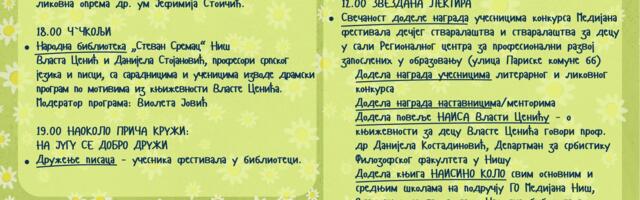 ликовна опрема др. ум Јефимија Стоичић.
18.00 Ч`ЧКОЉИ
Народна библиотека „Стеван Сремац“ Ниш
Власта Ценић и Данијела Стојановић, професори српског
језика и писци, са сарадницима и ученицима изводе драмски
програм по мотивима из књижевности Власте Ценића.
Модератор програма: Виолета Јовић
19.00 НАОКОЛО ПРИЧА КРУЖИ:
НА ЈУГУ СЕ ДОБРО ДРУЖИ
Дружење писаца - учесника фестивала у библиотеци.
12.00 ЗВЕЗДАНА ЛЕКТИРА
Свечаност доделе награда учесницима конкурса Медијана
фестивала дечјег стваралаштва и стваралаштва за децу
у сали Регионалног центра за професионални развој
запослених у образовању (улица Париске комуне бб)
Додела награда ученицима литерарног и ликовног
конкурса
Додела награда наставницима/менторима
Додела повеље НАИСА Власти Ценићу - о
књижевности за децу Власте Ценића говори проф.
др Данијела Костадиновић, Департман за србистику
Филозофског факултета у Нишу
Додела књига НАИСИНО КОЛО свим основним и
средњим школама на подручју ГО Медијана Ниш,